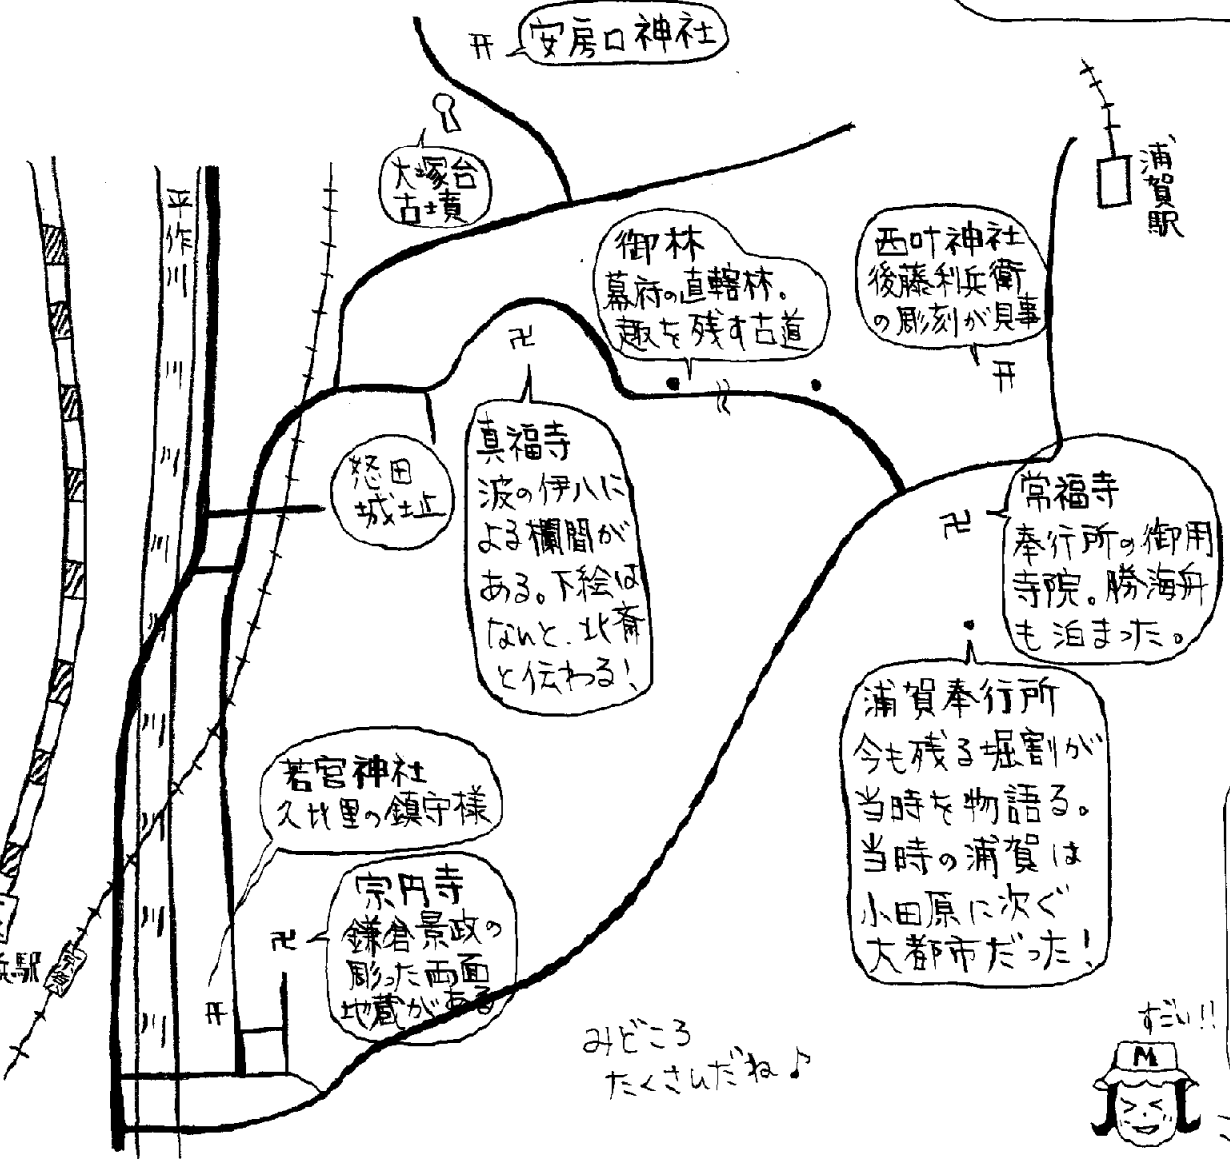 安房口神社
大塚台
古墳
浦賀駅
平作川
御林
幕府の直轄林。
趣を残す古道
西叶神社
後藤利兵衛
の彫刻が見事
怒田
城址
真福寺
波の伊八に
よる欄間が
ある。下絵は
なんと、北斎
と伝わる！
常福寺
奉行所の御用
寺院。勝海舟
も泊まった。
浦賀奉行所
今も残る堀割が
当時を物語る。
当時の浦賀は
小田原に次ぐ
大都市だった！
若宮神社
久比里の鎮守様
宗円寺
鎌倉景政の
彫った両面
地蔵がある
浜駅
みどころ
たくさんだね♪
すごい!!
M